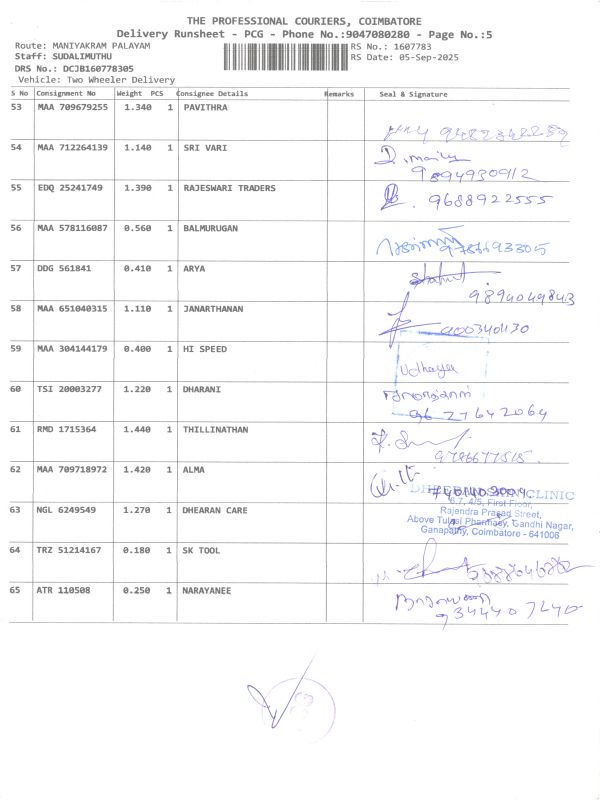 THE PROFESSIONAL COURIERS, COIMBATORE
Delivery Runsheet - PCG - Phone No.:9047080280 - Page No.:5
Route: MANIYAKRAM PALAYAM RS No.: 1607783
Staff: SUDALIMUTHU RS Date: 05-Sep-2025
DRS No.: DCJB160778305
Vehicle: Two Wheeler Delivery
S No Consignment No Weight PCS Consignee Details Remarks Seal & Signature
53 MAA 709679255 1.340 1 PAVITHRA
54 MAA 712264139 1.140 1 SRI VARI
9894930912
55 EDQ 25241749 1.390 1 RAJESWARI TRADERS
9688922555
56 MAA 578116087 0.560 1 BALMURUGAN
9786693305
57 DDG 561841 0.410 1 ARYA
9894049843
58 MAA 651040315 1.110 1 JANARTHANAN
9003401130
59 MAA 304144179 0.400 1 HI SPEED
Udhaya
60 TSI 20003277 1.220 1 DHARANI
9627642064
61 RMD 1715364 1.440 1 THILLINATHAN
9786677515
62 MAA 709718972 1.420 1 ALMA
CLINIC
63 NGL 6249549 1.270 1 DHEARAN CARE
67, 4/5, First Floor,
Rajendra Prasad Street,
Above Tulasi Pharmasy, Gandhi Nagar,
Ganapathy, Coimbatore - 641006
64 TRZ 51214167 0.180 1 SK TOOL
65 ATR 110508 0.250 1 NARAYANEE
9344407240